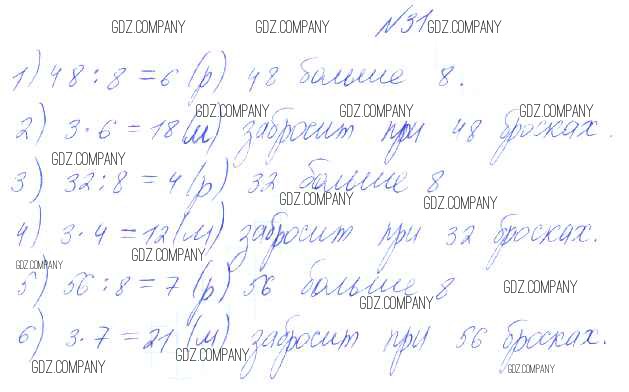 GDZ.COMPANY GDZ.COMPANY №31 GDZ.COMPANY
1) 48 : 8 = 6 (р) 48 больше 8.
GDZ.COMPANY GDZ.COMPANY GDZ.COMPANY
2) 3 · 6 = 18 (м) забросит при 48 бросках.
GDZ.COMPANY
3) 32 : 8 = 4 (р) 32 больше 8
GDZ.COMPANY GDZ.COMPANY
4) 3 · 4 = 12 (м) забросит при 32 бросках.
GDZ.COMPANY GDZ.COMPANY
5) 56 : 8 = 7 (р) 56 больше 8
GDZ.COMPANY GDZ.COMPANY
6) 3 · 7 = 21 (м) забросит при 56 бросках.
GDZ.COMPANY GDZ.COMPANY GDZ.COMPANY